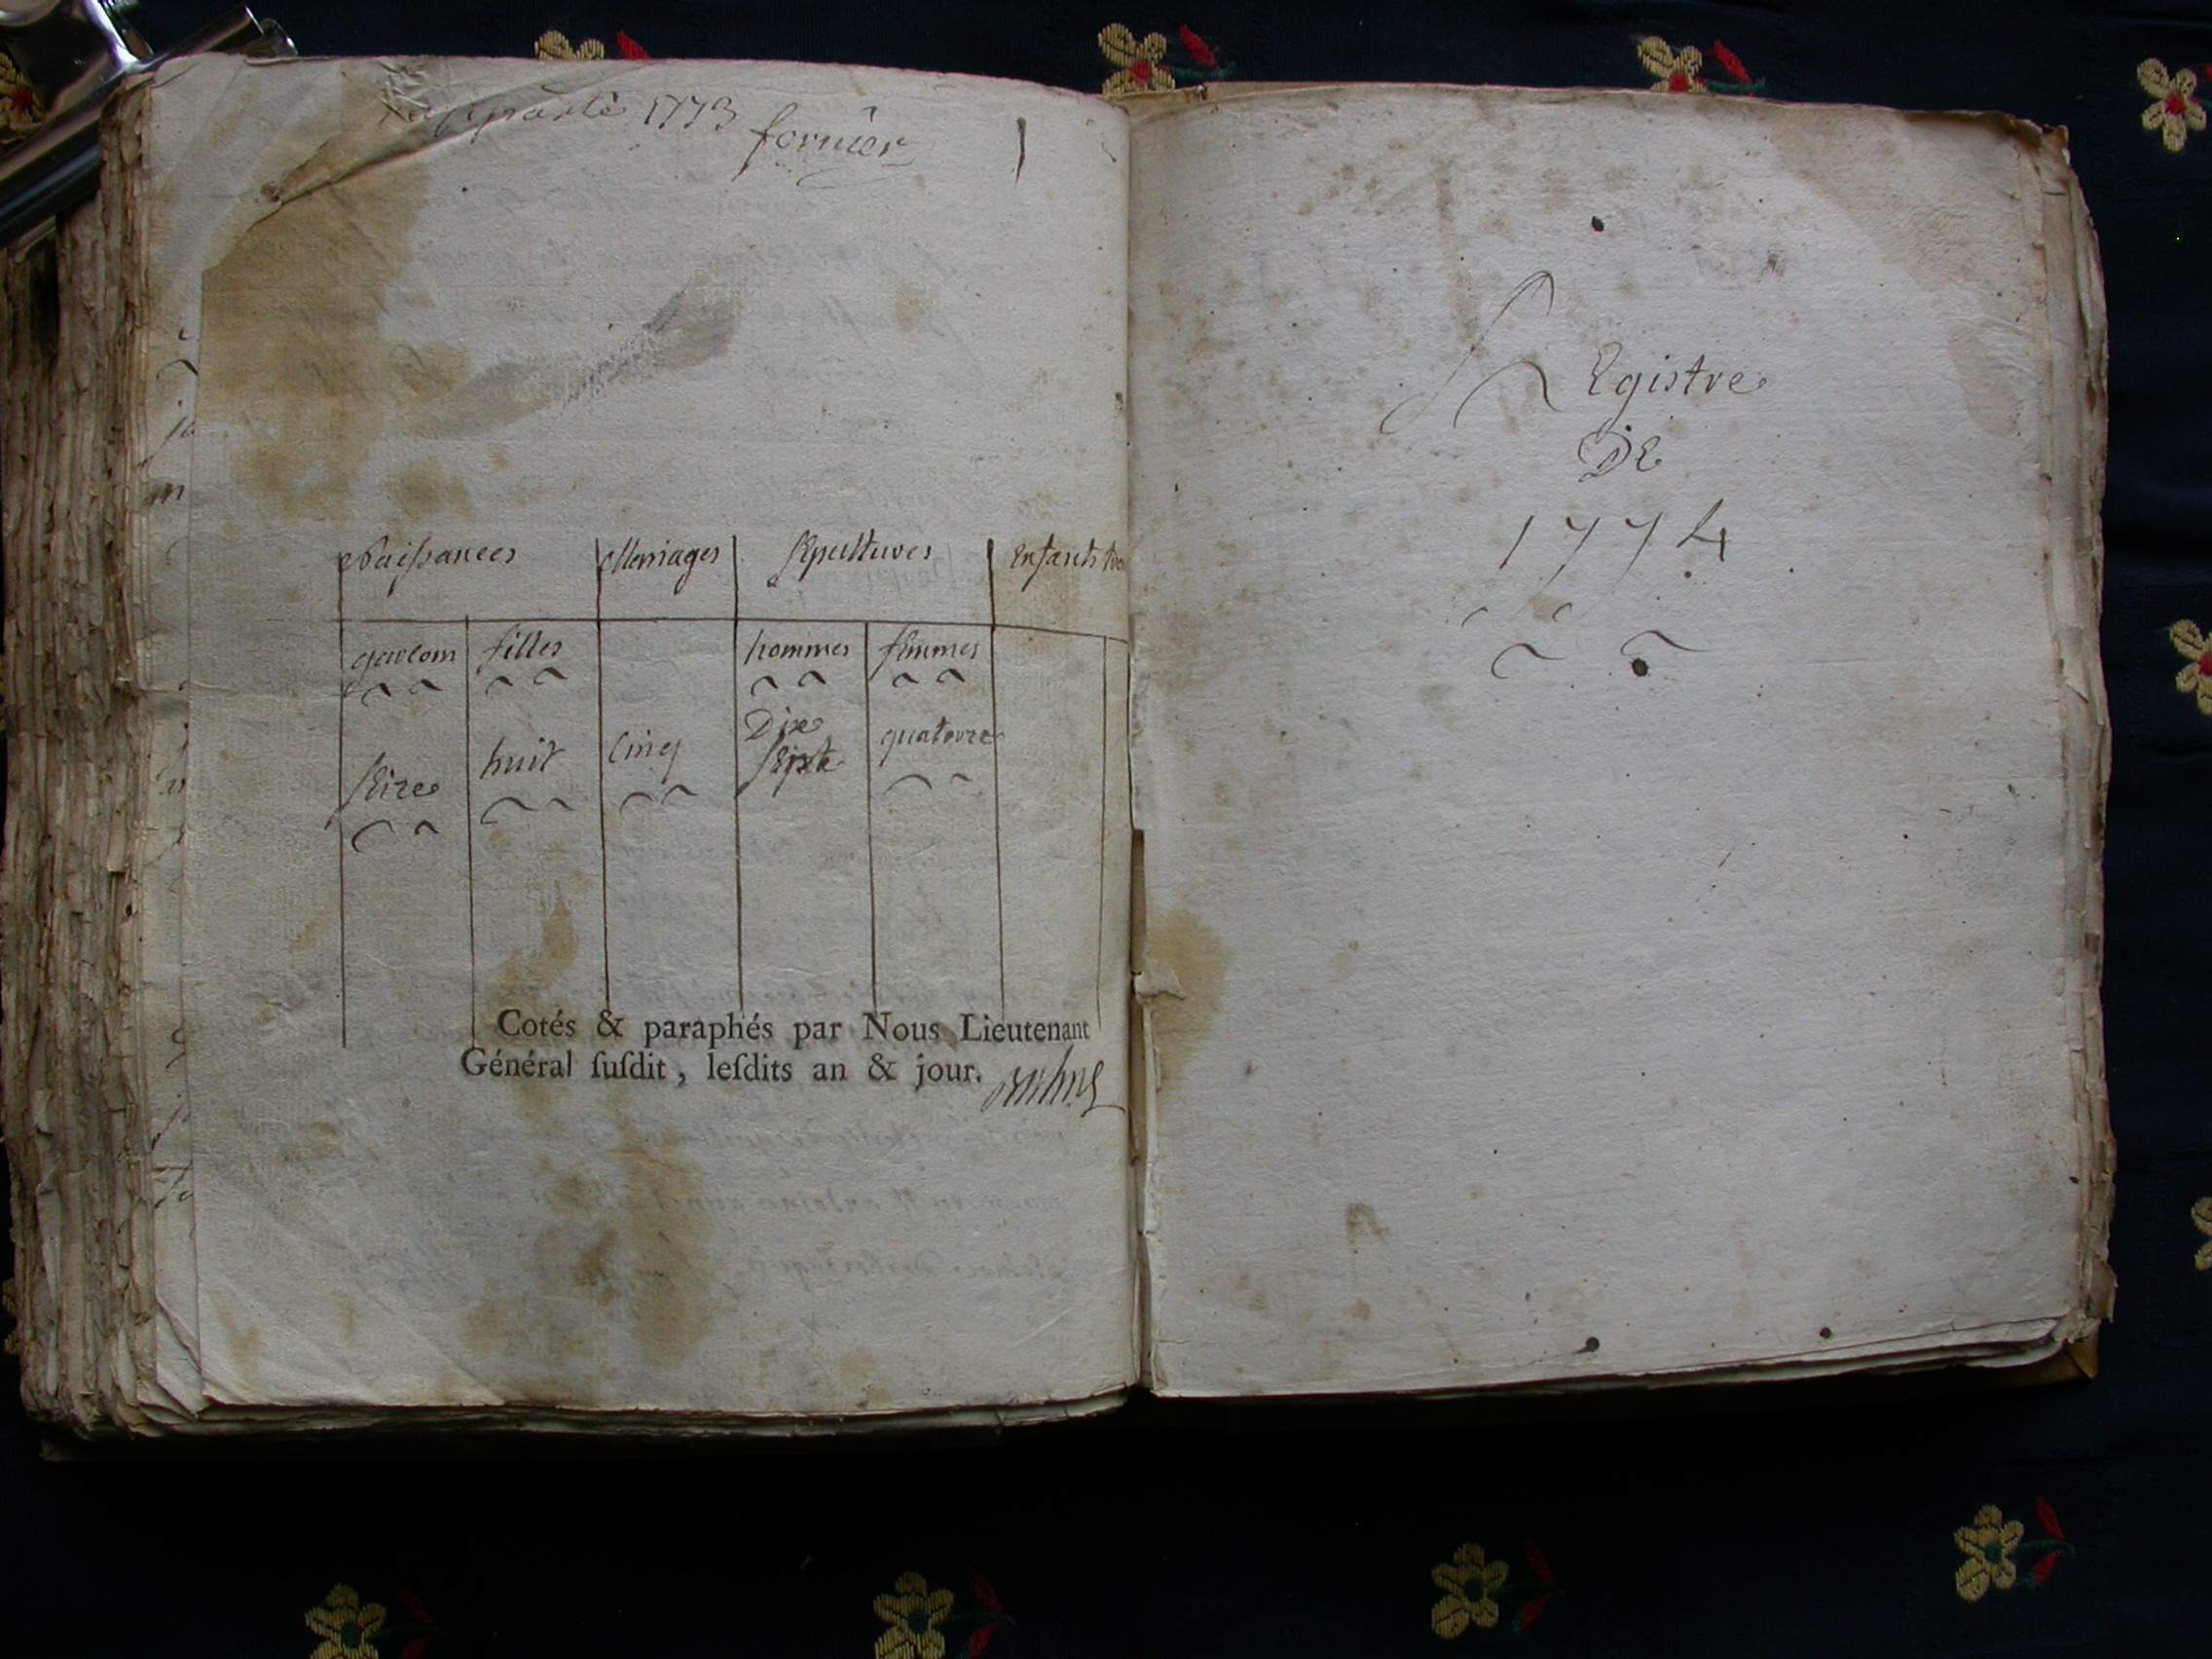 1773
fornier
Naissances Mariages Sepultures Enfants
garcons filles hommes femmes
Seize huit Cinq Dixe Sept quatorze
Cotés & paraphés par Nous Lieutenant
Général ſuſdit, leſdits an & jour.
Registre
DE
1774